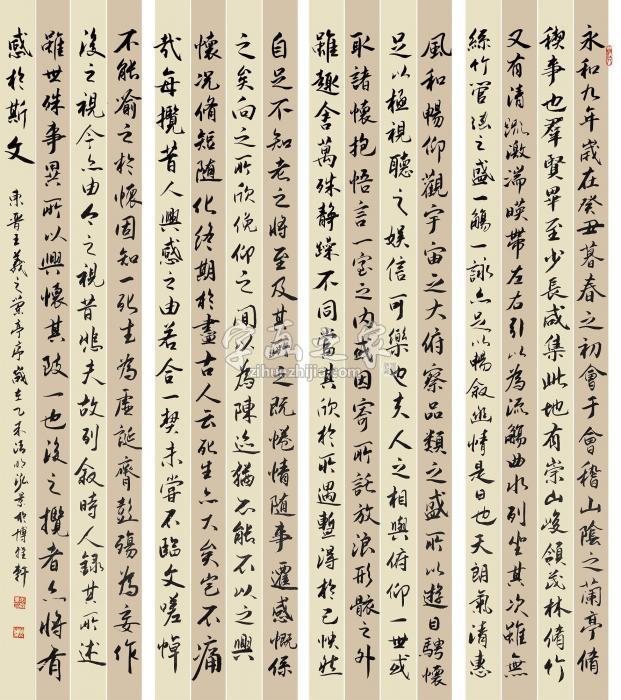 永和九年歲在癸丑暮春之初會于會稽山陰之蘭亭脩
稧事也羣賢畢至少長咸集此地有崇山峻領茂林脩竹
又有清流激湍暎帶左右引以為流觴曲水列坐其次雖無
絲竹管弦之盛一觴一詠亦足以暢敘幽情是日也天朗氣清惠
風和暢仰觀宇宙之大俯察品類之盛所以遊目騁懷
足以極視聽之娛信可樂也夫人之相與俯仰一世或
取諸懷抱悟言一室之內或因寄所託放浪形骸之外
雖趣舍萬殊静躁不同當其欣於所遇暫得於己怏然
自足不知老之將至及其所之既惓情隨事遷感慨係
之矣向之所欣俛仰之間以為陳迹猶不能不以之興
懷況脩短隨化終期於盡古人云死生亦大矣豈不痛
哉每攬昔人興感之由若合一契未嘗不臨文嗟悼
不能喻之於懷固知一死生為虛誕齊彭殤為妄作
後之視今亦由今之視昔悲夫故列敘時人錄其所述
雖世殊事異所以興懷其致一也後之攬者亦將有
感於斯文 東晉王羲之蘭亭序歲在乙未清明於博軒
字画之家
zihuazhijia.com